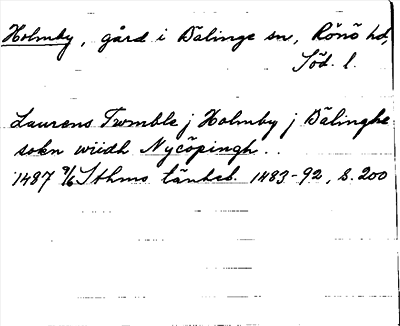 Holmby, gård i Bälinge sn, Rönö hd,
Söd. l.
Laurens Trwmble j Holmby j Bälinghe
sokn wiidh Nycöpingh..
1487 9/6 Sthms tänkeb. 1483-92, s. 200